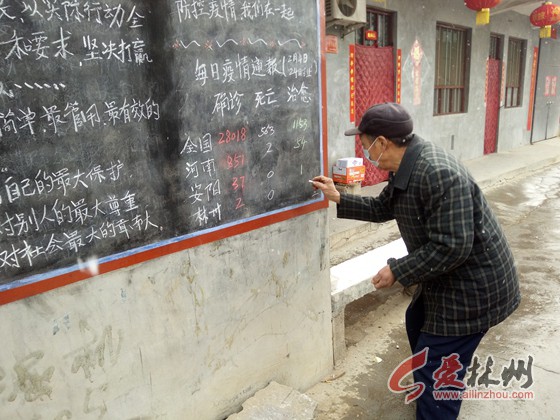 民,以实际行动全
和要求,坚决打赢
简单、最管用、最有效的
自己的最大保护
对别人的最大尊重
对社会最大的奉献
防控疫情 我们在一起
每日疫情速报(2月7日24时止)
确诊 死亡 治愈
全国 28018 563 1153
河南 851 2 56
安阳 37 0 1
林州 2 0
爱林州
www.ailinzhou.com